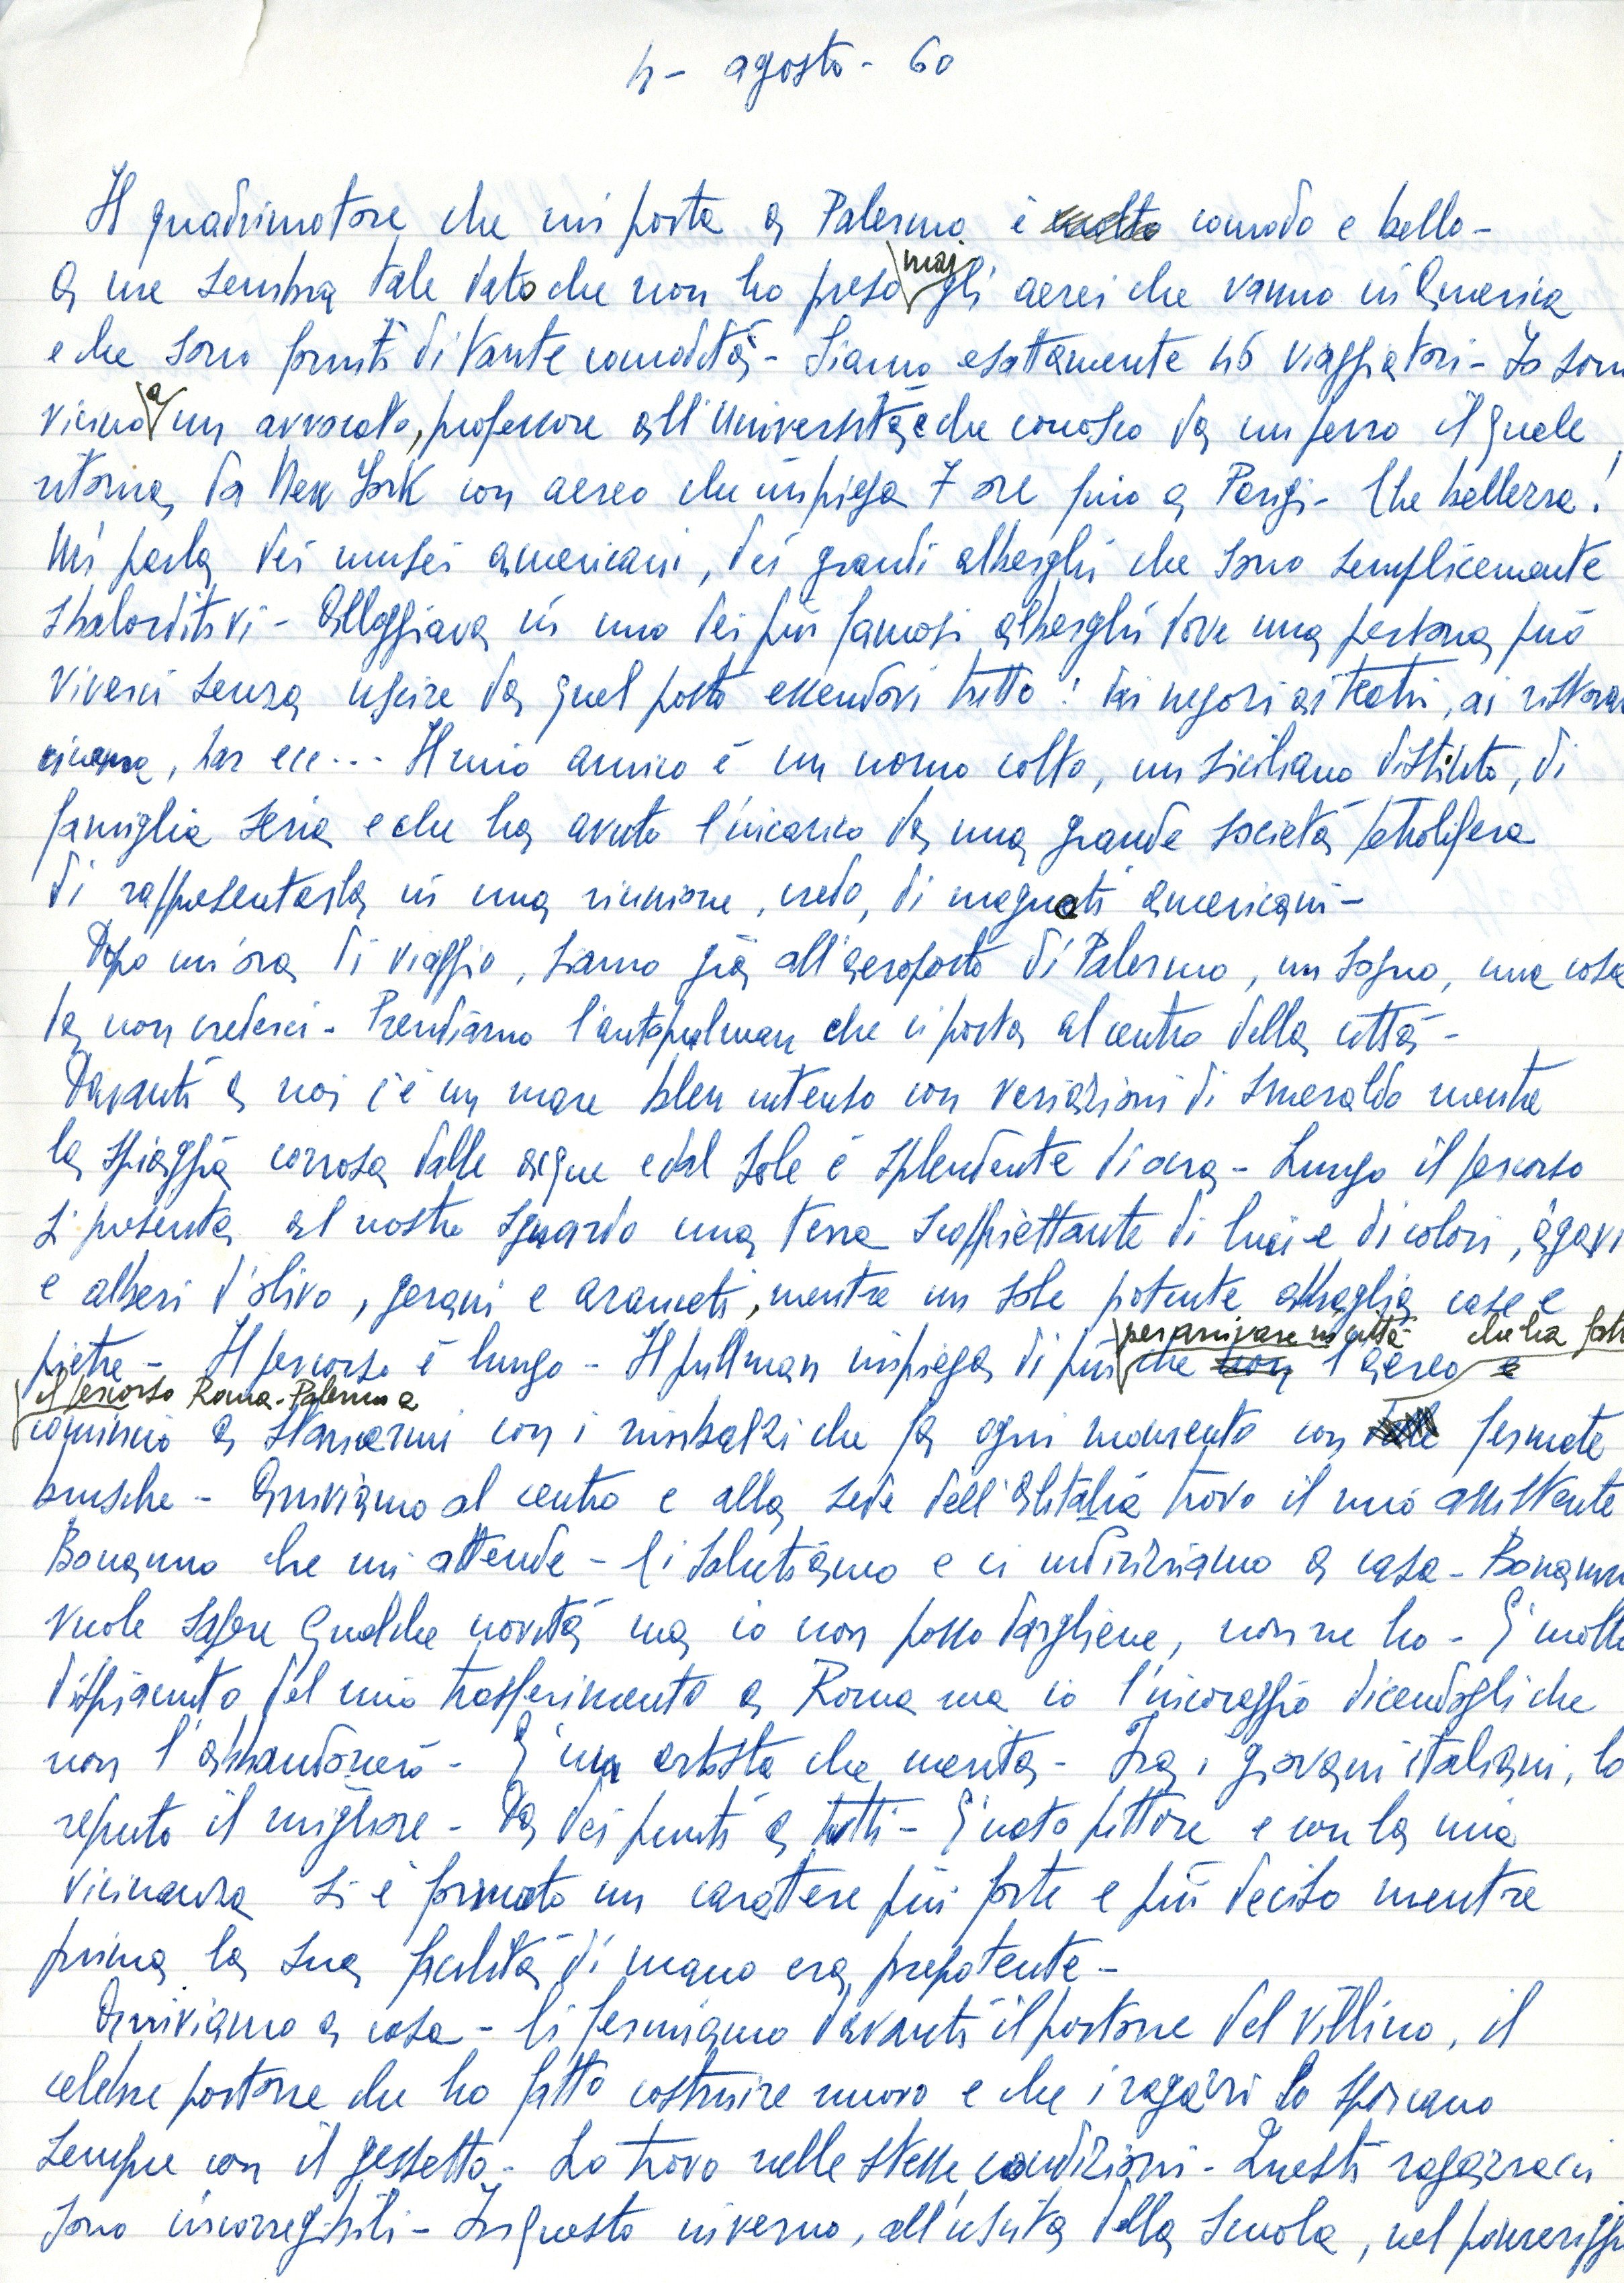 4 - agosto - 60
Il quadrimotore che mi porta a Palermo è molto comodo e bello -
mai
A me sembra tale dato che non ho preso gli aerei che vanno in America
e che sono forniti di tante comodità - Siamo esattamente 45 viaggiatori - Io sono
a
vicino un avvocato, professore all'Università e che conosco da un pezzo il quale
ritorna da New York con aereo che impiega 7 ore fino a Parigi - Che bellezza!
Mi parla dei musei americani, dei grandi alberghi che sono semplicemente
sbalorditivi - Alloggiava in uno dei più famosi alberghi dove una persona può
viverci senza uscire da quel posto essendovi tutto: dai negozi ai teatri, ai ristoran
cinema, bar ecc... Il mio amico è un uomo colto, un siciliano distinto, di
famiglia seria e che ha avuto l'incarico da una grande società petrolifera
di rappresentarla in una riunione, credo, di magnati americani -
Dopo un'ora di viaggio, siamo già all'aeroporto di Palermo, un sogno, una cosa
da non crederci - Prendiamo l'autopulman che ci porta al centro della città -
Davanti a noi c'è un mare bleu intenso con variazioni di smeraldo mentre
la spiaggia corrosa dalle acque e dal sole è splendente di ocra - Lungo il percorso
si presenta al nostro sguardo una terra scoppiettante di luci e di colori, àgavi
e alberi d'olivo, gerani e aranceti, mentre un sole potente abbaglia case e
per arrivare in città che ha fatto
pietre - Il percorso è lungo - Il pullman impiega di più che non l'aereo e
il percorso Roma-Palermo e
comincio a stancarmi con i rimbalzi che fa ogni momento con fermate
brusche - Arriviamo al centro e alla sede dell'Alitalia trovo il mio assistente
Bonanno che mi attende - Ci salutiamo e ci indirizziamo a casa - Bonanno
vuole sapere qualche novità ma io non posso dargliene, non ne ho - È molto
dispiaciuto del mio trasferimento a Roma ma io l'incoraggio dicendogli che
non l'abbandonerò - È un artista che merita - Fra i giovani italiani, lo
reputo il migliore - Dà dei punti a tutti - È nato pittore e con la mia
vicinanza si è formato un carattere più forte e più deciso mentre
prima la sua facilità di mano era prepotente -
Arriviamo a casa - Ci fermiamo davanti il portone del villino, il
celebre portone che ho fatto costruire nuovo e che i ragazzi lo sporcano
sempre con il gessetto - Lo trovo nelle stesse condizioni - Questi ragazzacci
sono incorregibili - In questo inverno, all'uscita della scuola, nel pomeriggio